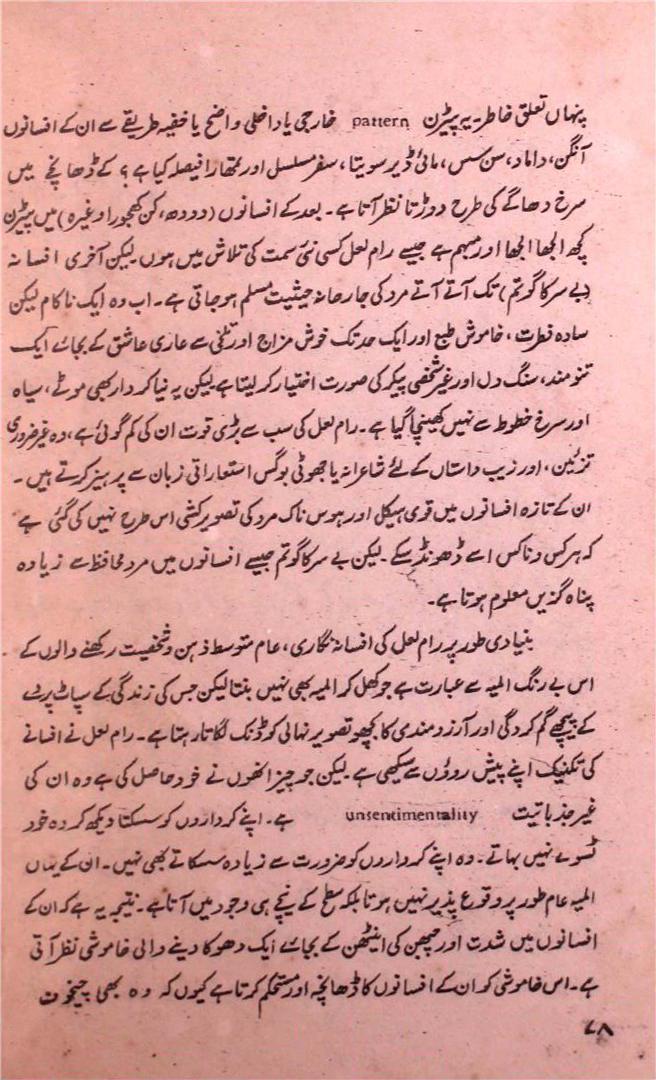 پنہاں تعلق خاطر یہ پیٹرن pattern خارجی یا داخلی واضح یا خفیہ طریقے سے ان کے افسانوں
آنگن، داماد، سن سس، مائی ڈیر سویتا، سفر مسلسل اور تمھارا فیصلہ کیا ہے؟ کے ڈھانچے میں
سرخ دھاگے کی طرح دوڑتا نظر آتا ہے۔ بعد کے افسانوں (دودھ، کن کھجورا وغیرہ) میں پیٹرن
کچھ الجھا الجھا اور مبہم ہے جیسے رام لعل کسی نئی سمت کی تلاش میں ہوں لیکن آخری افسانہ
(بے سر کا گوتم) تک آتے آتے مرد کی جارحانہ حیثیت مسلم ہو جاتی ہے۔ اب وہ ایک ناکام لیکن
سادہ فطرت، خاموش طبع اور ایک حد تک خوش مزاج اور تلخی سے عاری عاشق کے بجائے ایک
تنومند، سنگ دل اور غیر شخصی پیکر کی صورت اختیار کر لیتا ہے لیکن یہ نیا کردار بھی موٹے، سیاہ
اور سرخ خطوط سے نہیں کھینچا گیا ہے۔ رام لعل کی سب سے بڑی قوت ان کی کم گوئی ہے، وہ غیر ضروری
تزئین، اور زیب داستاں کے لئے شاعرانہ یا جھوٹی بوگس استعاراتی زبان سے پرہیز کرتے ہیں۔
ان کے تازہ افسانوں میں قوی ہیکل اور ہوس ناک مرد کی تصویر کشی اس طرح نہیں کی گئی ہے
کہ ہر کس و ناکس اسے ڈھونڈ سکے۔ لیکن بے سر کا گوتم جیسے افسانوں میں مرد محافظ سے زیادہ
پناہ گزیں معلوم ہوتا ہے۔
بنیادی طور پر رام لعل کی افسانہ نگاری، عام متوسط ذہن و شخصیت رکھنے والوں کے
اس بے رنگ المیہ سے عبارت ہے جو کھل کر المیہ بھی نہیں بنتا لیکن جس کی زندگی کے سپاٹ پردے
کے پیچھے گم کردگی اور آرزومندی کا بچھو تصویر نہالی کو ڈنک لگاتا رہتا ہے۔ رام لعل نے افسانے
کی تکنیک اپنے پیش روؤں سے سیکھی ہے لیکن جو چیز انھوں نے خود حاصل کی ہے وہ ان کی
غیر جذباتیت unsentimentality ہے۔ اپنے کرداروں کو سسکتا دیکھ کر وہ خود
ٹسوے نہیں بہاتے۔ وہ اپنے کرداروں کو ضرورت سے زیادہ سسکاتے بھی نہیں۔ ان کے یہاں
المیہ عام طور پر وقوع پذیر نہیں ہوتا بلکہ سطح کے نیچے ہی وجود میں آتا ہے۔ نتیجہ یہ ہے کہ ان کے
افسانوں میں شدت اور چبھن کی اینٹھن کے بجائے ایک دھوکا دینے والی خاموشی نظر آتی
ہے۔ اس خاموشی کو ان کے افسانوں کا ڈھانچہ اور مستحکم کرتا ہے کیوں کہ وہ بھی چیخوف
۷۸